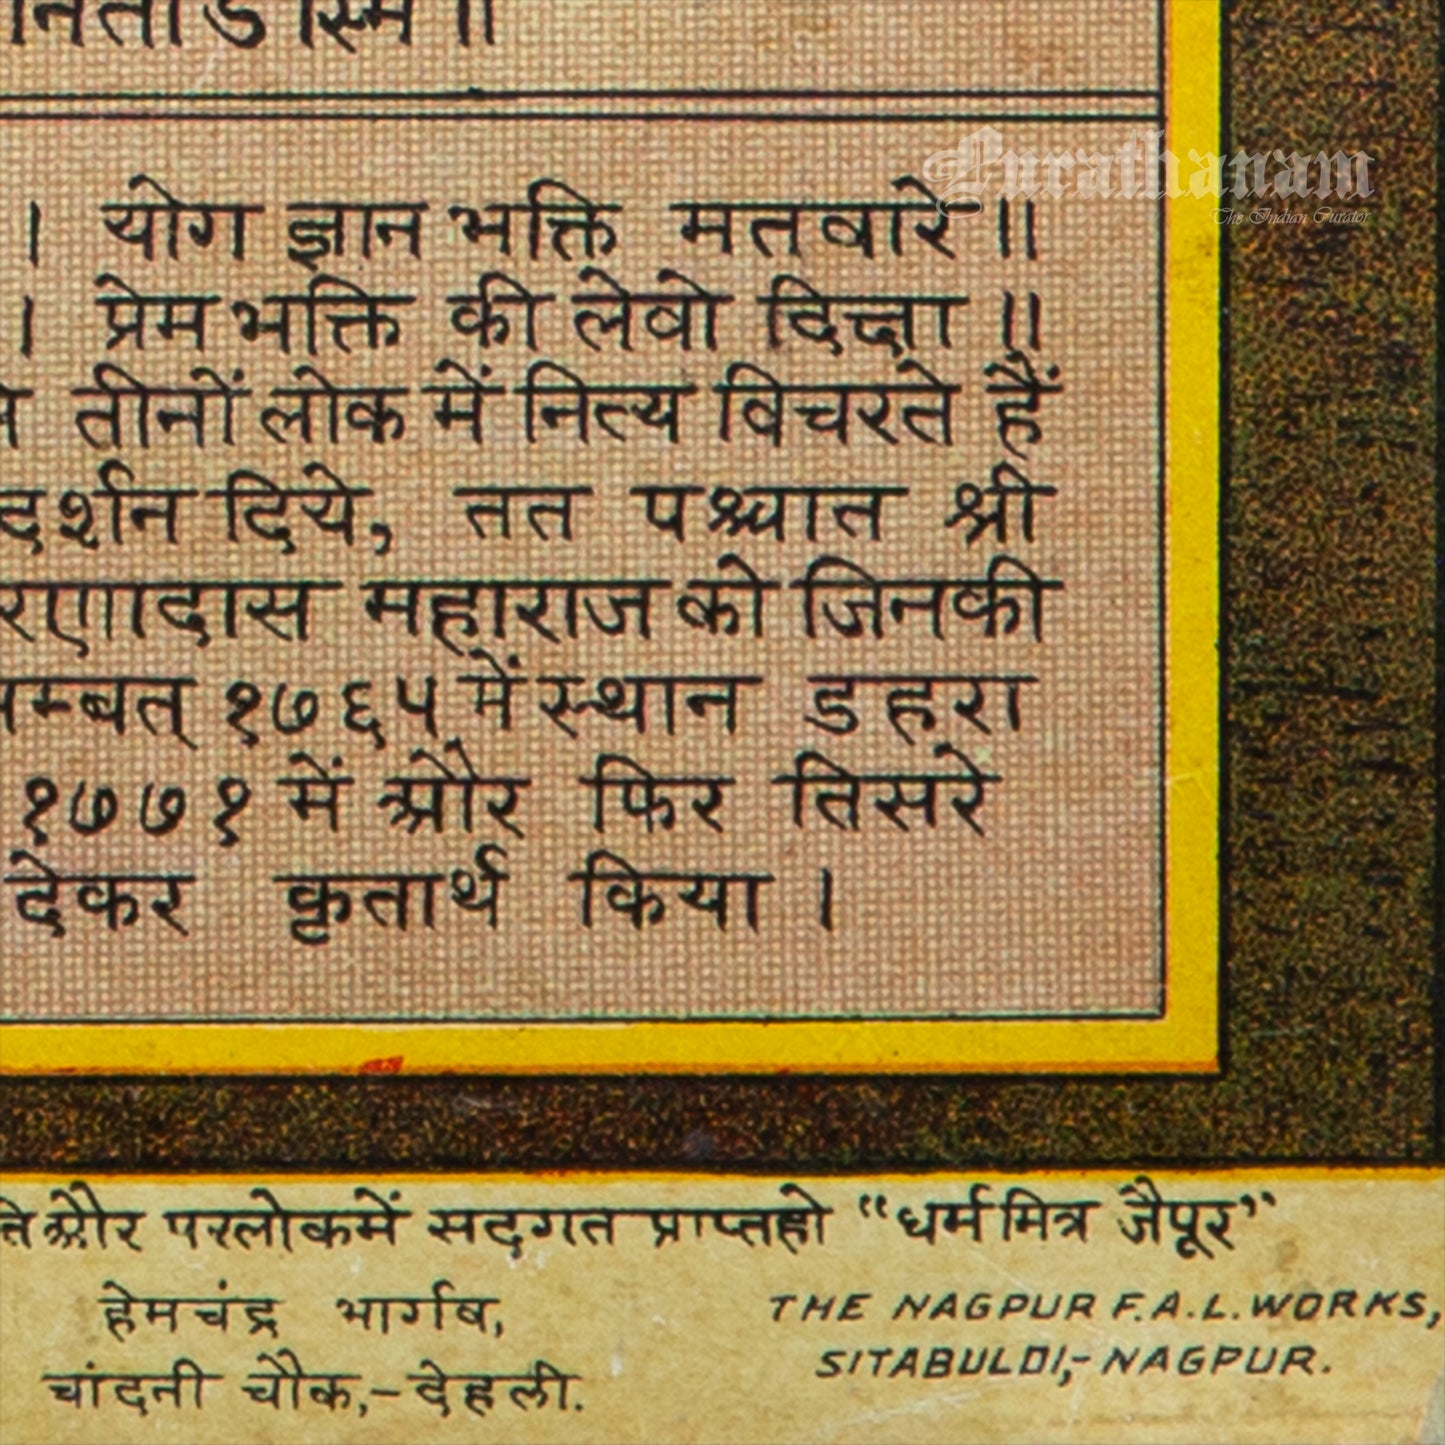 Curathanam
The Indian Curator
। योग ज्ञान भक्ति मतवारे ॥
। प्रेम भक्ति की लेवो दिक्षा ॥
तीनों लोक में नित्य विचरते हैं
दर्शन दिये, तत पश्चात श्री
रणादास महाराज को जिनकी
सम्वत् १७६५ में स्थान डहरा
१७७१ में और फिर तिसरे
देकर कृतार्थ किया ।
और परलोकमें सदगत प्राप्तहो “धर्ममित्र जैपूर”
हेमचंद्र भार्गव,
चांदनी चौक,-देहली.
THE NAGPUR F.A.L. WORKS,
SITABULDI,- NAGPUR.